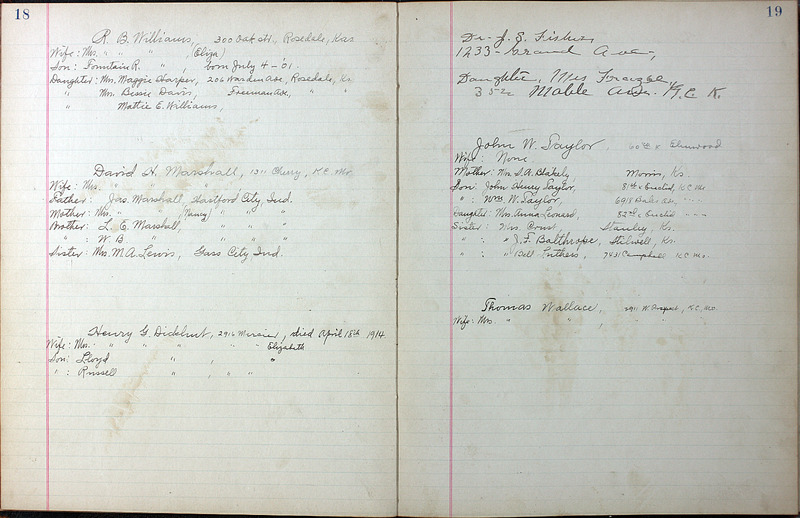 18
R. B. Williams, 300 Oak St., Rosedale, Kas
Wife: Mrs. " " " , (Eliza)
Son: Fountain R. " , born July 4 - '01.
Daughter: Mrs. Maggie Harper, 206 Ave, Rosedale, Ks.
" Mrs. Bessie Davis, Freeman Ave, " "
" Mattie E. Williams,
David H. Marshall, 1311 Cherry, K.C. Mo.
Wife: Mrs. " " " " " "
Father: Jas. Marshall, Hartford City, Ind.
Mother: Mrs. " (Nancy) " " "
Brother: L. E. Marshall, " " "
" : W. B. " " " "
Sister: Mrs. M. A. Lewis, Gass City, Ind.
Henry G. 2916 Mercier, died April 18th 1914
Wife: Mrs. " " " " " Elizabeth
Son: Lloyd " , "
" : Russell " , " "
19
Dr. J. S.
1233 - Grand Ave,
Daughter, Mrs
35 Ave. K.C. K.
John W. Taylor, 60th & Elmwood
Wife: None
Mother: Mrs. S. A. Blakely, Morris, Ks.
Son: John Henry Taylor, 81st & Euclid, K.C. Mo.
" : Wm. W. Taylor, 6918 " " "
Daughter: Mrs. Anna Leonard, 82nd & Euclid " " "
Sister: Mrs. Stanley, Ks.
" : " J. F. Balthrope, Stilwell, Ks.
" : " Bell 7431 Campbell K.C. Mo.
Thomas Wallace, 2911 W. Prospect, K.C. Mo.
Wife: Mrs. " " , " "